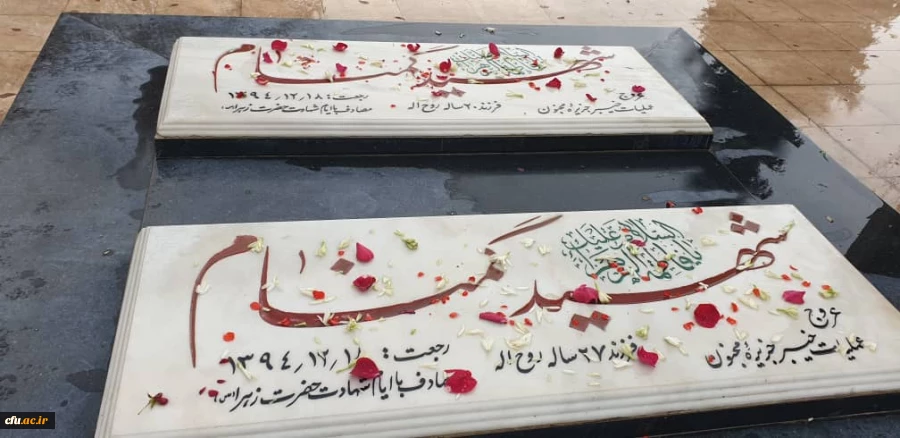 شهید گمنام
عروج
عملیات خیبر جزیرهٔ مجنون
فرزند ۲۰ ساله روح اله
رجعت: ۱۳۹۴/۱۲/۱۸
مصادف با ایام شهادت حضرت زهرا(س)
السلام علیک
یا فاطمة الزهرا
شهید گمنام
عروج
عملیات خیبر جزیرهٔ مجنون
فرزند ۲۷ ساله روح اله
رجعت: ۱۳۹۴/۱۲/۱۸
مصادف با ایام شهادت حضرت زهرا(س)
cfu.ac.ir